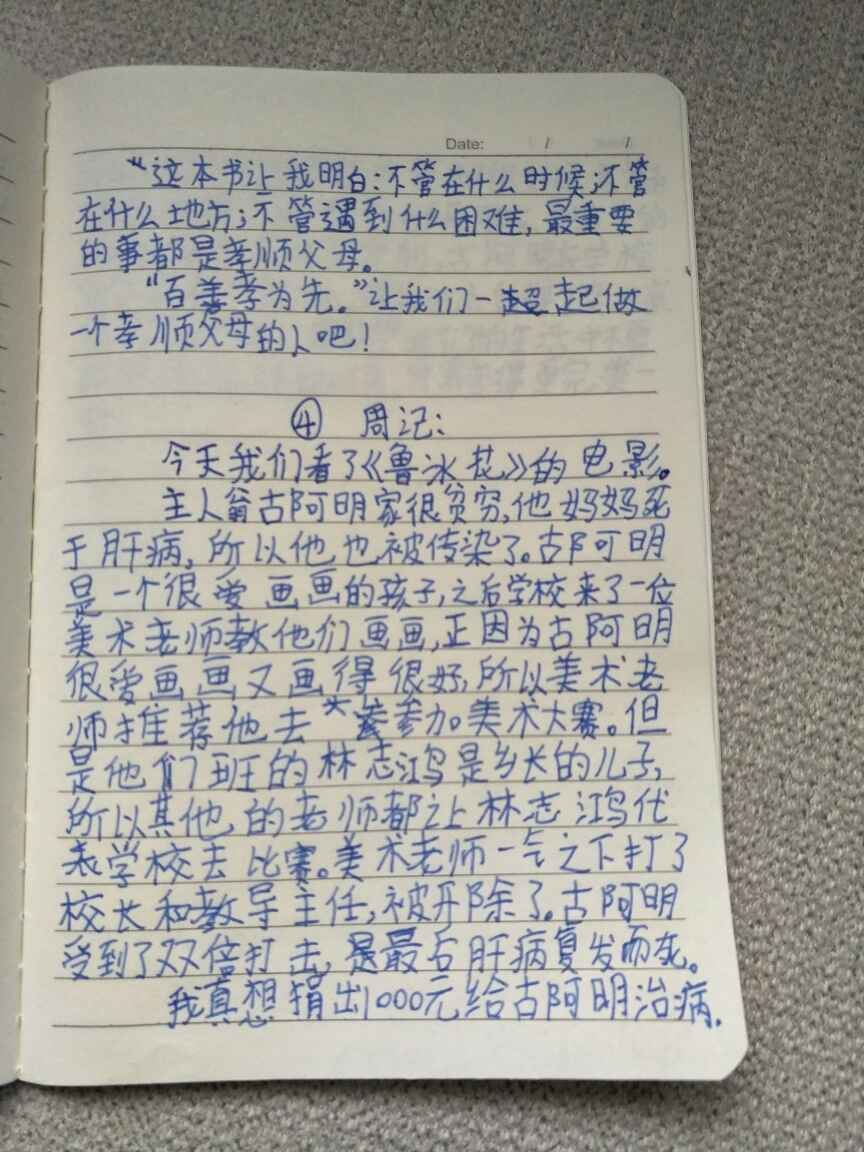 Date: / /
“这本书让我明白:不管在什么时候;不管
在什么地方;不管遇到什么困难,最重要
的事都是孝顺父母。
“百善孝为先。”让我们一起做
一个孝顺父母的人吧!
④ 周记:
今天我们看了《鲁冰花》的电影。
主人翁古阿明家很贫穷,他妈妈死
于肝病,所以他也被传染了。古阿明
是一个很爱画画的孩子,之后学校来了一位
美术老师教他们画画,正因为古阿明
很爱画画又画得很好,所以美术老
师推荐他去参加美术大赛。但
是他们班的林志鸿是乡长的儿子,
所以其他的老师都让林志鸿代
表学校去比赛。美术老师一气之下打了
校长和教导主任,被开除了。古阿明
受到了双倍打击,最后肝病复发而死。
我真想捐出1000元给古阿明治病.